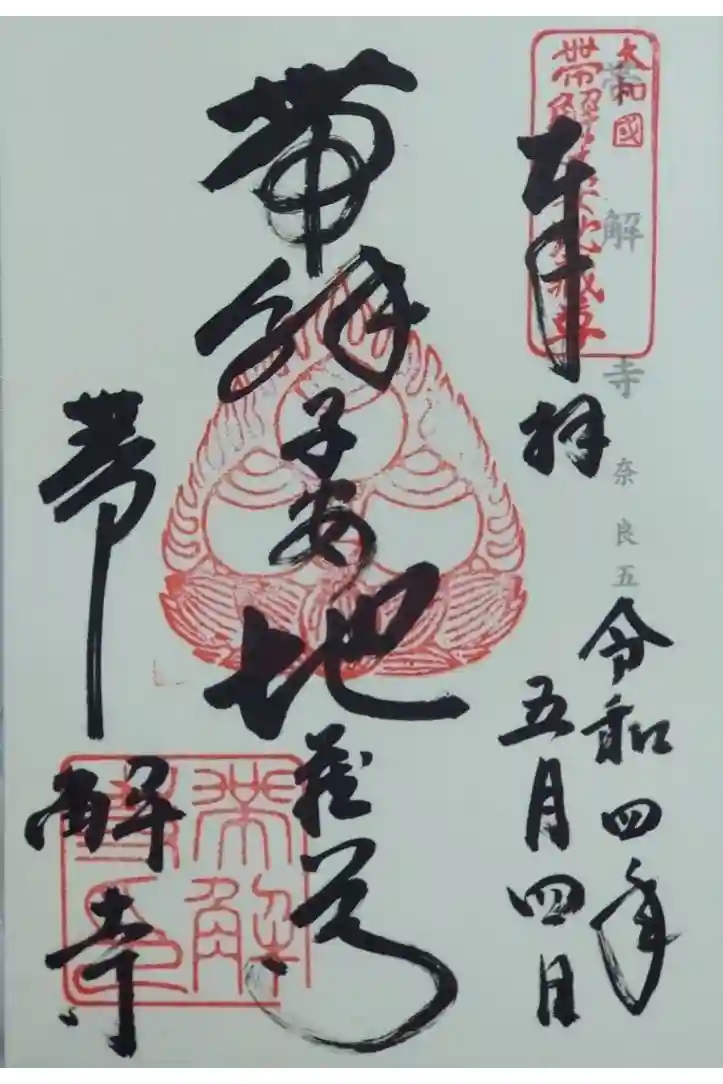 大和國
帶解子安地蔵尊
奉拝
帯解寺
奈良五
令和四年
五月四日
帯解子安地蔵尊
帯解寺
帯解寺印